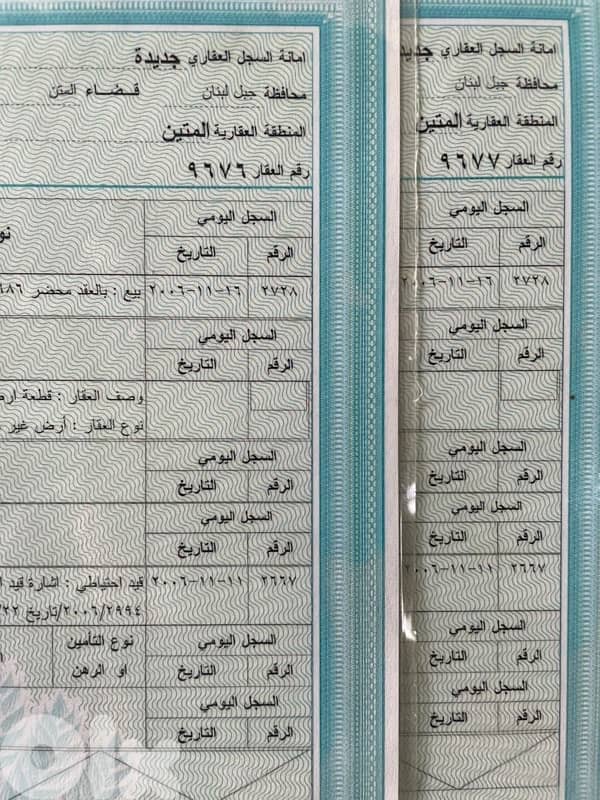 امانة السجل العقاري جديدة
محافظة جبل لبنان قضاء المتن
المنطقة العقارية المتين
رقم العقار ٩٦٧٦
السجل اليومي
الرقم التاريخ
٢٧٢٨ ١٦-١١-٢٠٠٦ بيع : بالعقد محضر
السجل اليومي
الرقم التاريخ
وصف العقار : قطعة
نوع العقار : أرض غير
السجل اليومي
الرقم التاريخ
السجل اليومي
الرقم التاريخ
٢٦٦٧ ١١-١١-٢٠٠٦ قيد احتياطي : اشارة قيد
٢٠٠٦/٢٩٩٤/تاريخ
السجل اليومي نوع التأمين
الرقم التاريخ او الرهن
السجل اليومي
الرقم التاريخ
امانة السجل العقاري
محافظة جبل لبنان
المنطقة العقارية المتين
رقم العقار ٩٦٧٧
السجل اليومي
الرقم التاريخ
٢٧٢٨ ١٦-١١-٢٠٠٦
السجل اليومي
الرقم التاريخ
السجل اليومي
الرقم التاريخ
السجل اليومي
الرقم التاريخ
٢٦٦٧ ١١-١١-٢٠٠٦
السجل اليومي
الرقم التاريخ
السجل اليومي
الرقم التاريخ